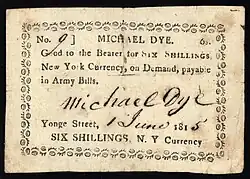 No. 93 MICHAEL DYE. 6s.
Good to the Bearer for SIX SHILLINGS,
New York Currency, on Demand, payable
in Army Bills.
Michael Dye
Yonge Street, 1 June 1815
SIX SHILLINGS, N. Y Currency